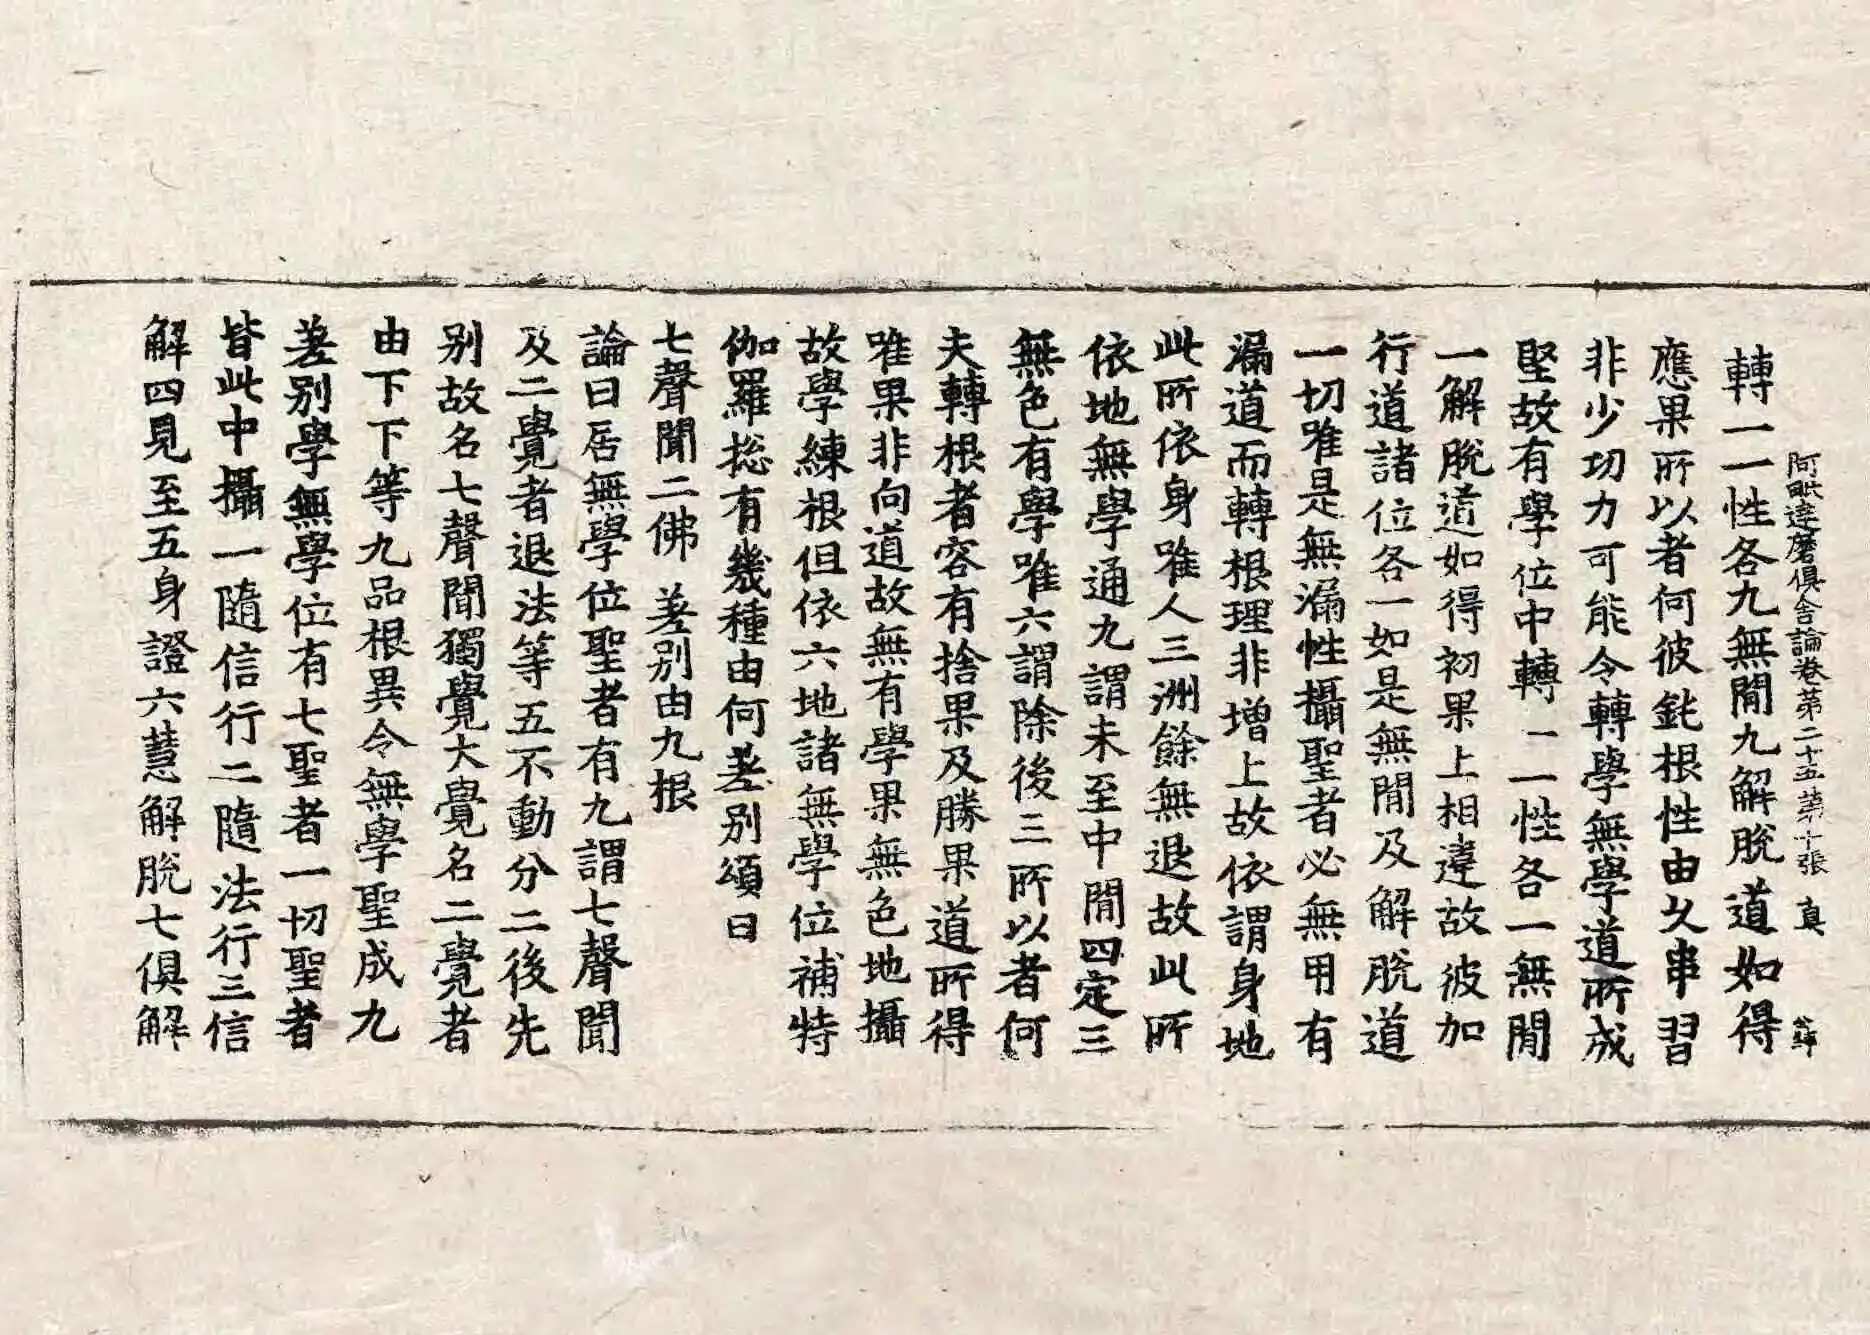 阿毗達磨俱舍論卷第二十五第十張 真
轉一一性各九無閒九解脫道如得
應果所以者何彼鈍根性由久串習
非少功力可能令轉學無學道所成
堅故有學位中轉一一性各一無閒
一解脫道如得初果上相違故彼加
行道諸位各一如是無閒及解脫道
一切唯是無漏性攝聖者必無用有
漏道而轉根理非增上故依謂身地
此所依身唯人三洲餘無退故此所
依地無學通九謂未至中閒四定三
無色有學唯六謂除後三所以者何
夫轉根者容有捨果及勝果道所得
唯果非向道故無有學果無色地攝
故學練根但依六地諸無學位補特
伽羅捴有幾種由何差別頌曰
七聲聞二佛 差別由九根
論曰居無學位聖者有九謂七聲聞
及二覺者退法等五不動分二後先
別故名七聲聞獨覺大覺名二覺者
由下下等九品根異令無學聖成九
差別學無學位有七聖者一切聖者
皆此中攝一隨信行二隨法行三信
解四見至五身證六慧解脫七俱解